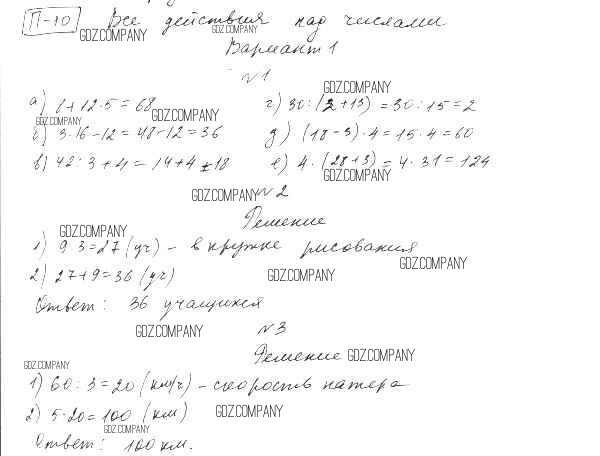 П-10 Все действия над числами
GDZ.COMPANY GDZ.COMPANY
Вариант 1
№1
GDZ.COMPANY
а) 8+12·5=68 г) 30:(2+13)=30:15=2
GDZ.COMPANY
GDZ.COMPANY
б) 3·16-12=48-12=36 д) (18-3)·4=15·4=60
в) 42:3+4=14+4=18 е) 4·(28+3)=4·31=124
GDZ.COMPANY
GDZ.COMPANY №2
Решение
GDZ.COMPANY
1) 9·3=27 (уч) - в кружке рисования
GDZ.COMPANY
2) 27+9=36 (уч) GDZ.COMPANY
Ответ: 36 учащихся
GDZ.COMPANY №3
Решение GDZ.COMPANY
GDZ.COMPANY
1) 60:3=20 (км/ч) - скорость катера
2) 5·20=100 (км) GDZ.COMPANY
GDZ.COMPANY
Ответ: 100 км.